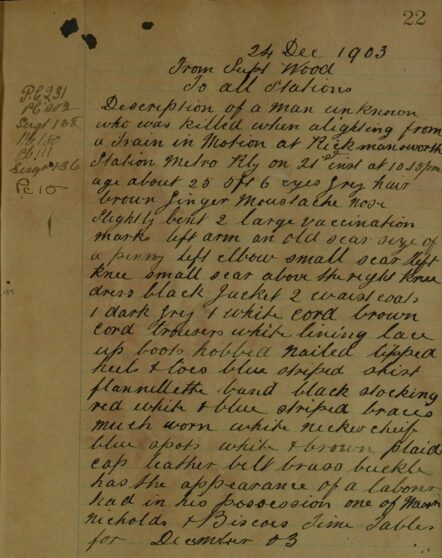 22
24 Dec 1903
From Supt Wood
To all Stations
P.C 231
Sergt 138
Pc 10
Description of a man unknown
who was killed when alighting from
a Train in Motion at Rickmansworth
Station Metro Rly on 21st inst at 10.18 pm
age about 25 5ft 6 eyes grey hair
brown Ginger Moustache nose
slightly bent 2 large vaccination
marks left arm an old scar size of
a penny left elbow small scar left
knee small scar above the right knee
dress black Jacket 2 waistcoats
1 dark grey 1 white cord brown
cord trousers white lining lace
up boots hobbed nailed tipped
heels & toes blue striped shirt
flannellette band black stocking
red white & blue striped braces
much worn white neckercheif
blue spots white & brown plaid
cap leather belt brass buckle
has the appearance of a laborer
had in his possession one of
Nicholds & Biscoes Time Tables
for December 03